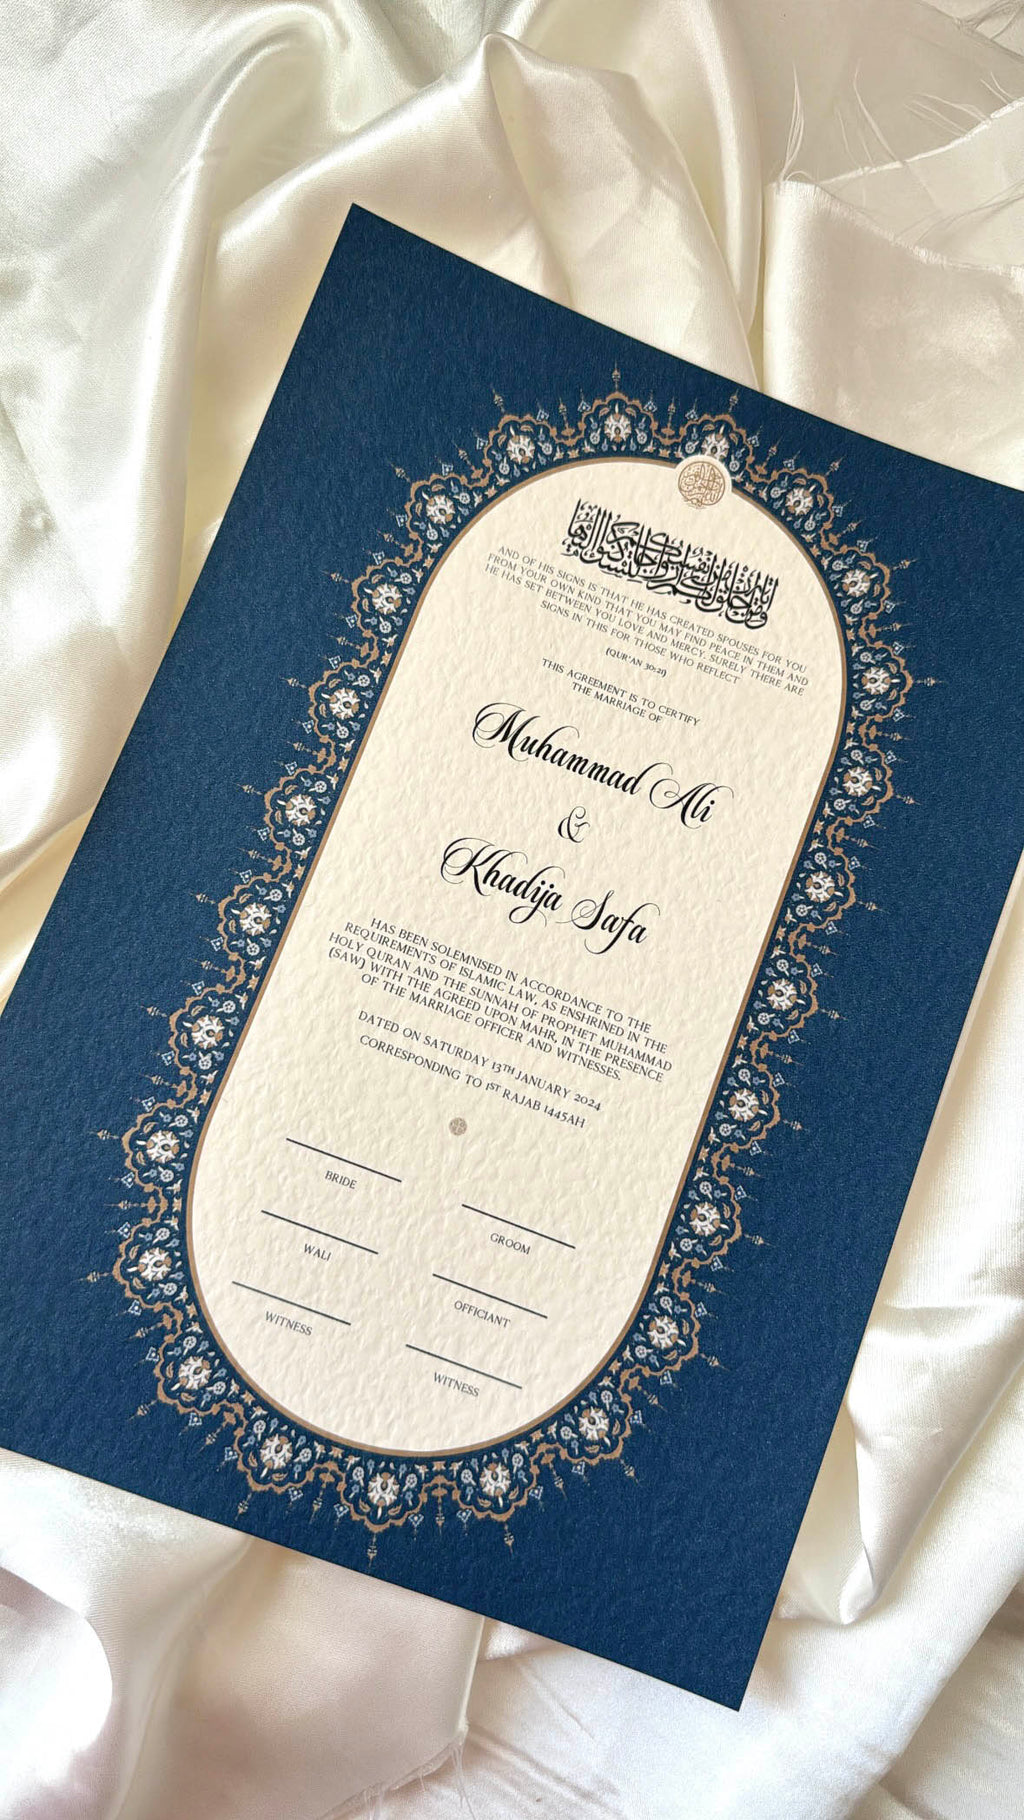 ومن آياته أن خلق لكم من أنفسكم أزواجا لتسكنوا إليها
AND OF HIS SIGNS IS THAT HE HAS CREATED SPOUSES FOR YOU
FROM YOUR OWN KIND THAT YOU MAY FIND PEACE IN THEM AND
HE HAS SET BETWEEN YOU LOVE AND MERCY. SURELY THERE ARE
SIGNS IN THIS FOR THOSE WHO REFLECT
(QUR'AN 30:21)
THIS AGREEMENT IS TO CERTIFY
THE MARRIAGE OF
Muhammad Ali
&
Khadija Safa
HAS BEEN SOLEMNISED IN ACCORDANCE TO THE
REQUIREMENTS OF ISLAMIC LAW, AS ENSHRINED IN THE
HOLY QURAN AND THE SUNNAH OF PROPHET MUHAMMAD
(SAW) WITH THE AGREED UPON MAHR, IN THE PRESENCE
OF THE MARRIAGE OFFICER AND WITNESSES.
DATED ON SATURDAY 13TH JANUARY 2024
CORRESPONDING TO 1ST RAJAB 1445AH
BRIDE
GROOM
WALI
OFFICIANT
WITNESS
WITNESS